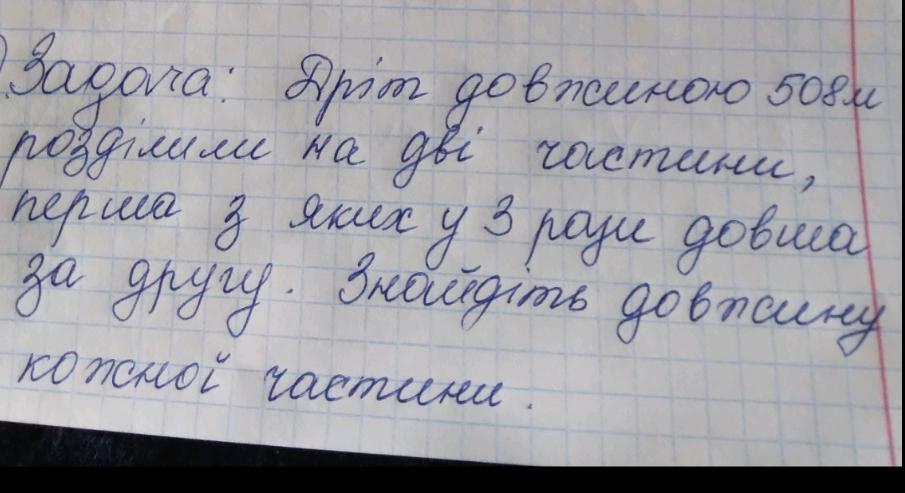 Задача: Дріт довжиною 508м
розділили на дві частини,
перша з яких у 3 рази довша
за другу. Знайдіть довжину
кожної частини.